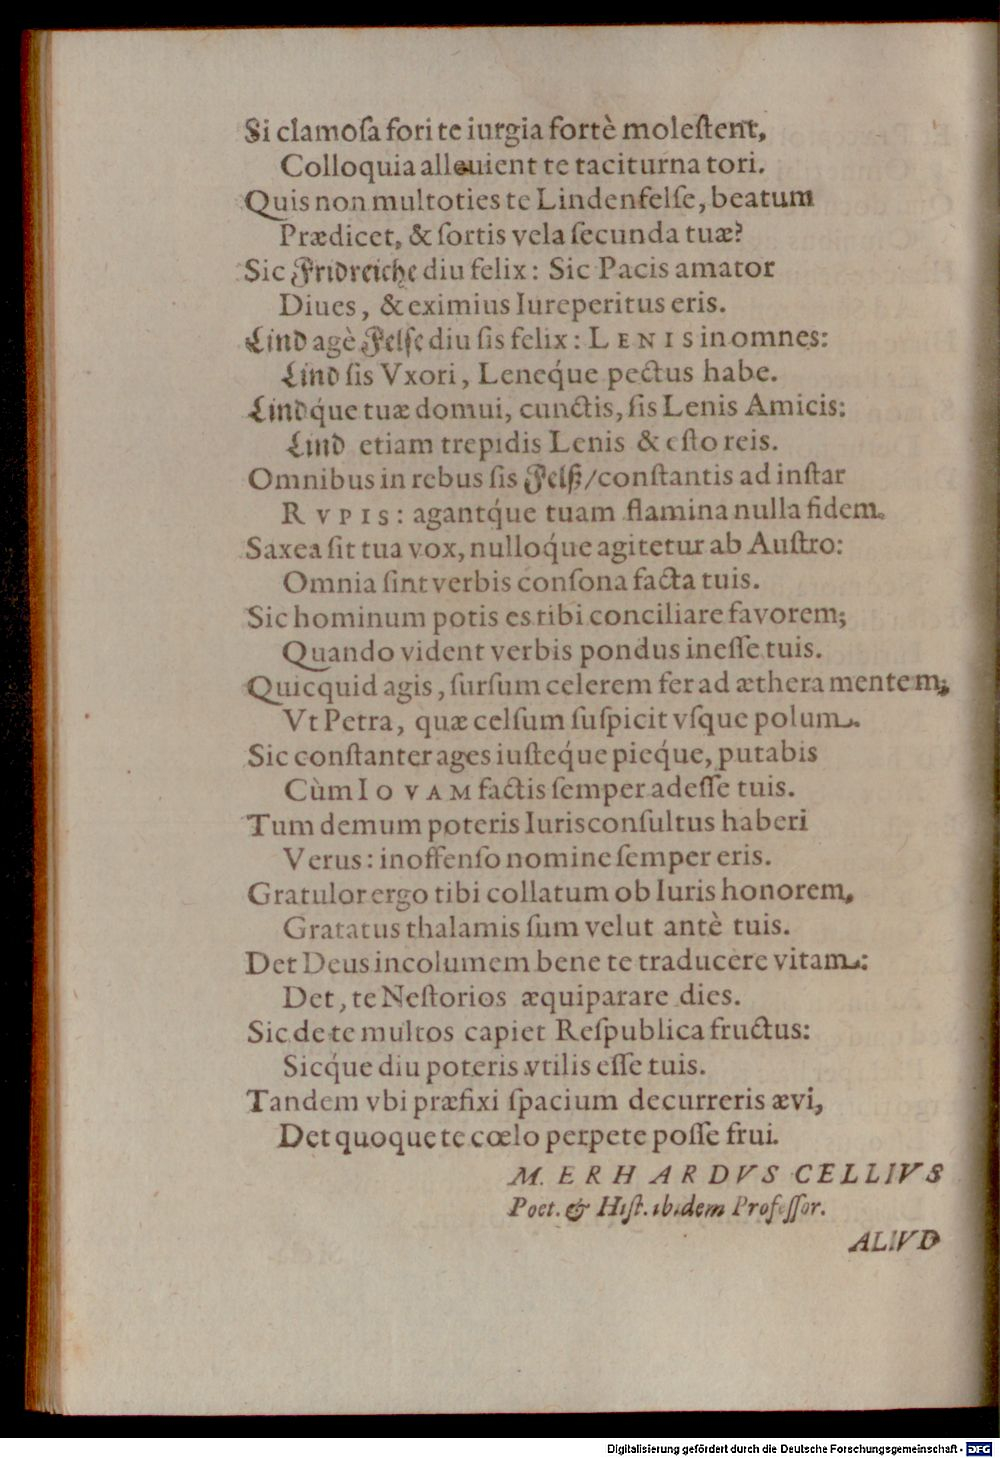 Si clamoſa fori te iurgia fortè moleſtent,
Colloquia alleuient te taciturna tori.
Quis non multoties te Lindenfelſe, beatum
Prædicet, & ſortis vela ſecunda tuæ?
Sic Fridreiche diu felix: Sic Pacis amator
Diues, & eximius Iureperitus eris.
Lind agè Felſe diu ſis felix: LENIS in omnes:
Lind ſis Vxori, Leneq́ue pectus habe.
Lindq́ue tuæ domui, cunctis, ſis Lenis Amicis:
Lind etiam trepidis Lenis & eſto reis.
Omnibus in rebus ſis Felß/conſtantis ad inſtar
RVPIS: agantq́ue tuam flamina nulla fidem.
Saxea ſit tua vox, nulloq́ue agitetur ab Auſtro:
Omnia ſint verbis conſona facta tuis.
Sic hominum potis es tibi conciliare favorem;
Quando vident verbis pondus ineſſe tuis.
Quicquid agis, ſurſum celerem fer ad æthera mentem;
Vt Petra, quæ celſum ſuſpicit vſque polum.
Sic conſtanter ages iuſteq́ue pieq́ue, putabis
Cùm IOVAM factis ſemper adeſſe tuis.
Tum demum poteris Iurisconſultus haberi
Verus: inoffenſo nomine ſemper eris.
Gratulor ergo tibi collatum ob Iuris honorem,
Gratatus thalamis ſum velut antè tuis.
Det Deus incolumem bene te traducere vitam:
Det, te Neſtorios æquiparare dies.
Sic de te multos capiet Reſpublica fructus:
Sicq́ue diu poteris vtilis eſſe tuis.
Tandem vbi præfixi ſpacium decurreris ævi,
Det quoque te cœlo perpete poſſe frui.
M. ERHARDVS CELLIVS
Poet. & Hiſt. ibidem Profeſſor.
ALIVD
Digitalisierung gefördert durch die Deutsche Forschungsgemeinschaft - DFG